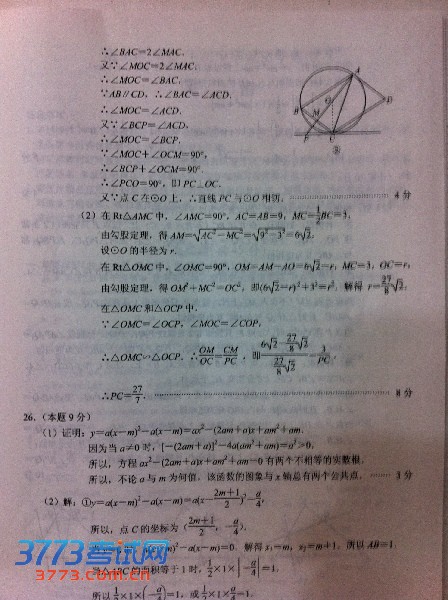 ∴∠BAC=2∠MAC.
又∵∠MOC=2∠MAC.
∴∠MOC=∠BAC.
∵AB∥CD, ∴∠BAC=∠ACD.
∴∠MOC=∠ACD.
又∵∠BCP=∠ACD,
∴∠MOC=∠BCP.
∵∠MOC+∠OCM=90°,
∴∠BCP+∠OCM=90°.
∴∠PCO=90°, 即 PC⊥OC.
又∵点 C 在⊙O 上, ∴直线 PC 与⊙O 相切. 4 分
A
B
D
O
M
P
C
②
(2) 在 Rt△AMC 中, ∠AMC=90°, AC=AB=9, MC=1/2BC=3.
由勾股定理, 得 AM=√(AC²−MC²)=√(9²−3²)=6√2.
设⊙O 的半径为 r.
在 Rt△OMC 中, ∠OMC=90°, OM=AM−AO=6√2−r, MC=3, OC=r,
由勾股定理, 得 OM²+MC²=OC², 即(6√2−r)²+3²=r². 解得 r=27/8√2.
在△OMC 和△OCP 中,
∵∠OMC=∠OCP, ∠MOC=∠COP,
∴△OMC∽△OCP. ∴OM/OC=CM/PC, 即 (6√2−27/8√2)/(27/8√2)=3/PC.
∴PC=27/7. 8 分
26. (本题 9 分)
(1) 证明: y=a(x−m)²−a(x−m)=ax²−(2am+a)x+am²+am.
因为当 a≠0 时, [−(2am+a)]²−4a(am²+am)=a²>0.
所以, 方程 ax²−(2am+a)x+am²+am=0 有两个不相等的实数根.
所以, 不论 a 与 m 为何值, 该函数的图象与 x 轴总有两个公共点. 3 分
(2) 解: ①y=a(x−m)²−a(x−m)=a(x−(2m+1)/2)²−a/4,
所以, 点 C 的坐标为((2m+1)/2, −a/4).
²−a(x−m)=0. 解得 x₁=m, x₂=m+1. 所以 AB=1.
当△ABC 的面积等于 1 时, 1/2×1×|−a/4|=1.
所以 1/2×1×(−a/4)=1, 或 1/2×1×a/4=1.
3773考试网
3773.com.cn